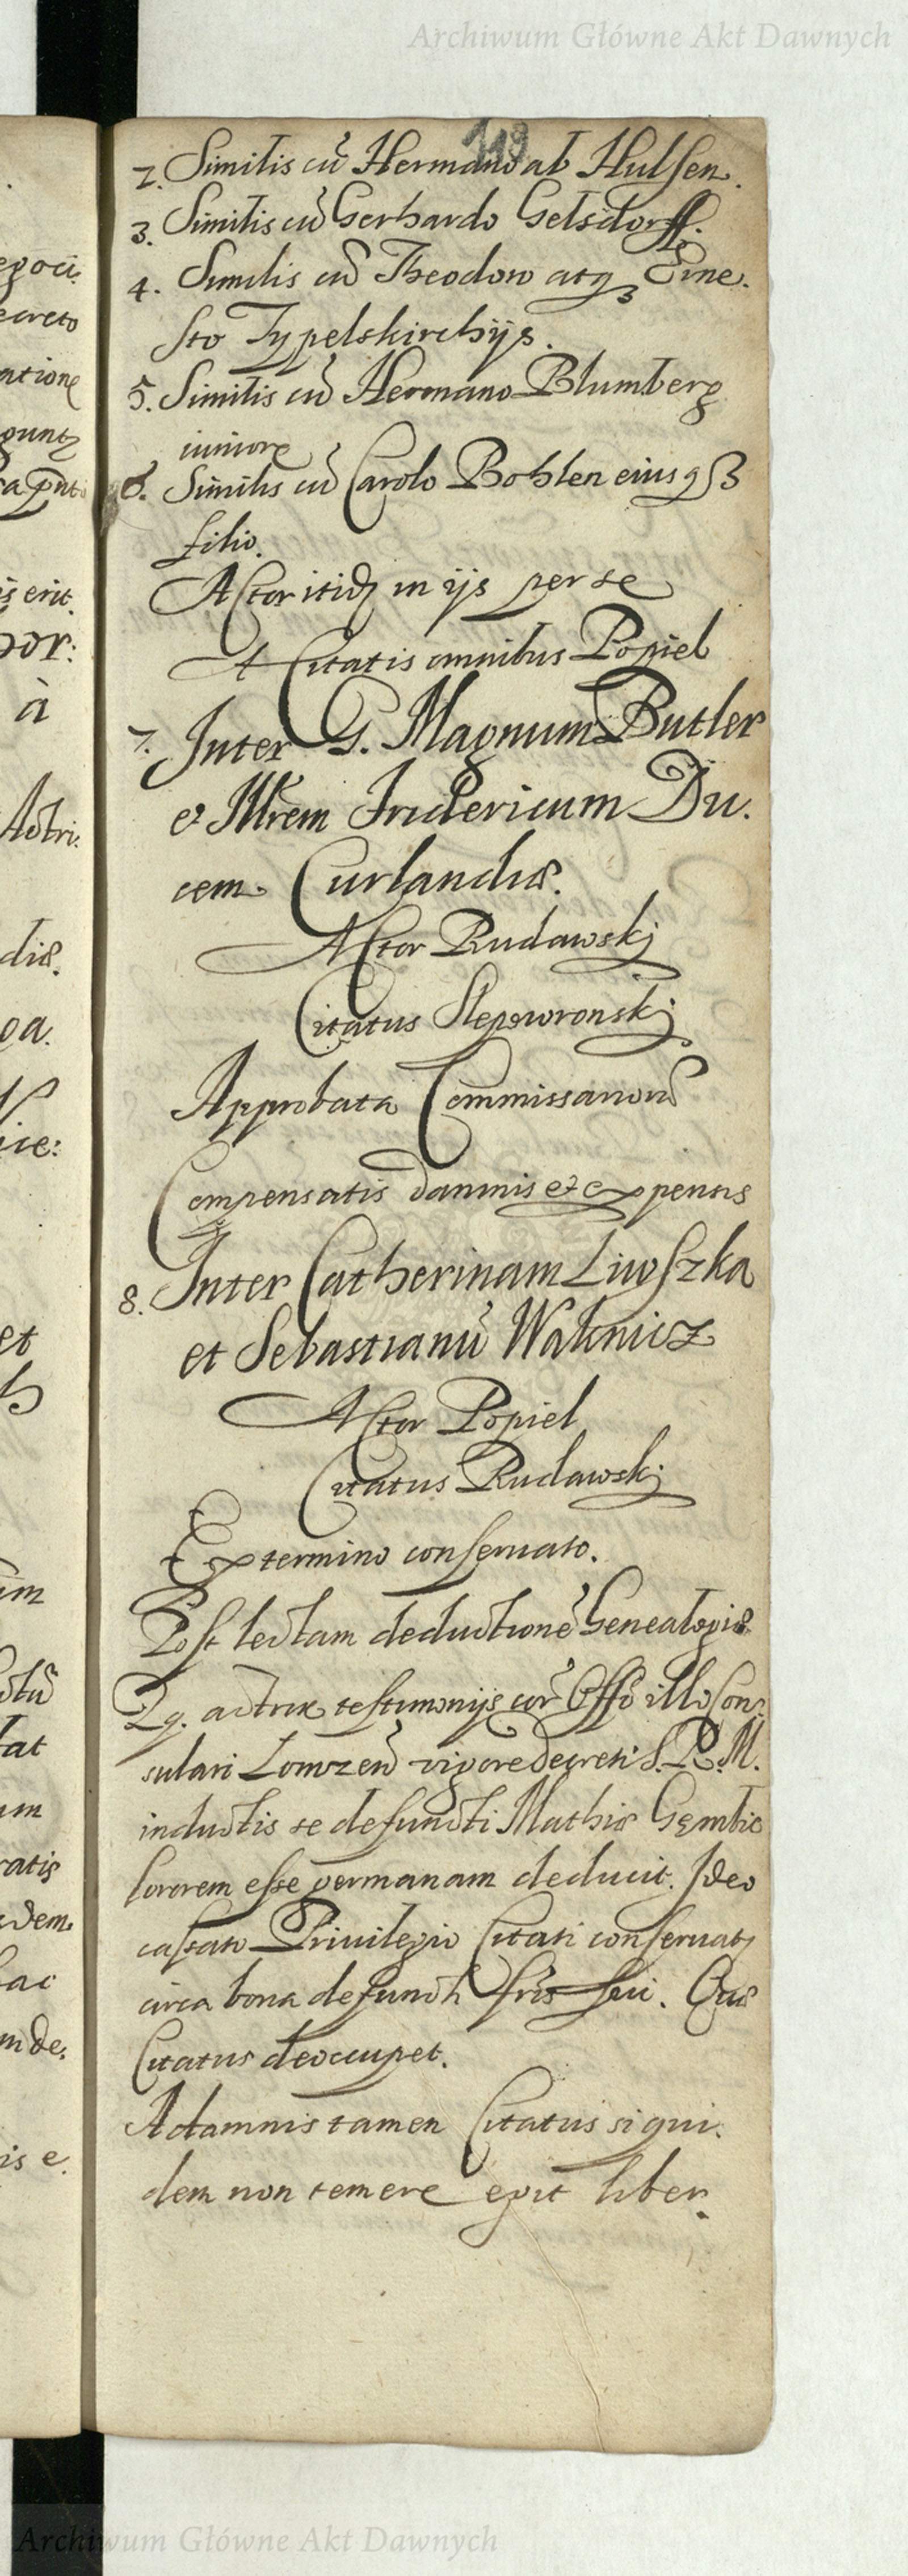 Archiwum Główne Akt Dawnych
119
2. Similis cū Hermano ab Hulsen.
3. Similis cū Gerhardo Getsdorff.
4. Similis cū Theodoro atq3 Erne.
sto Typelskirchijs.
5. Similis cū Hermano Blumberg
iuniore
6. Similis cū Carolo Bohlen eiusq3
filio.
Actor itidē in ijs per se
A Citatis omnibus Popiel
7. Inter G. Magnum Butler
et Illrem Fridericum Du.
cem Curlandiæ.
Actor Rudawskj
Citatus Slepowronskj
Approbata Commissariorū
Compensatis damnis et expensis
8. Inter Catherinam Liwszka
et Sebastianū Waknicz
Actor Popiel
Citatus Rudawskj
Ex termino conseruato.
Post lectam deductionē Genealogiæ
Qq. actrix testimonijs cor̄ Offō illo Con.
sulari Lomzen̄ vigore decreti S. R. M.
inductis se defuncti Mathiæ Gęmbic
sororem esse germanam deducit. Ideo
cassato Privilegio Citati conseruat̄
circa bona defuncti frīs sui. Quæ
Citatus deoccupet.
A damnis tamen Citatus siqui.
dem non temere egit liber.
egoci.
ecreto
atione
à
Actri.
diæ.
et
im
tat
um
ratis
dem.
hac
m de.
is e.
Archiwum Główne Akt Dawnych